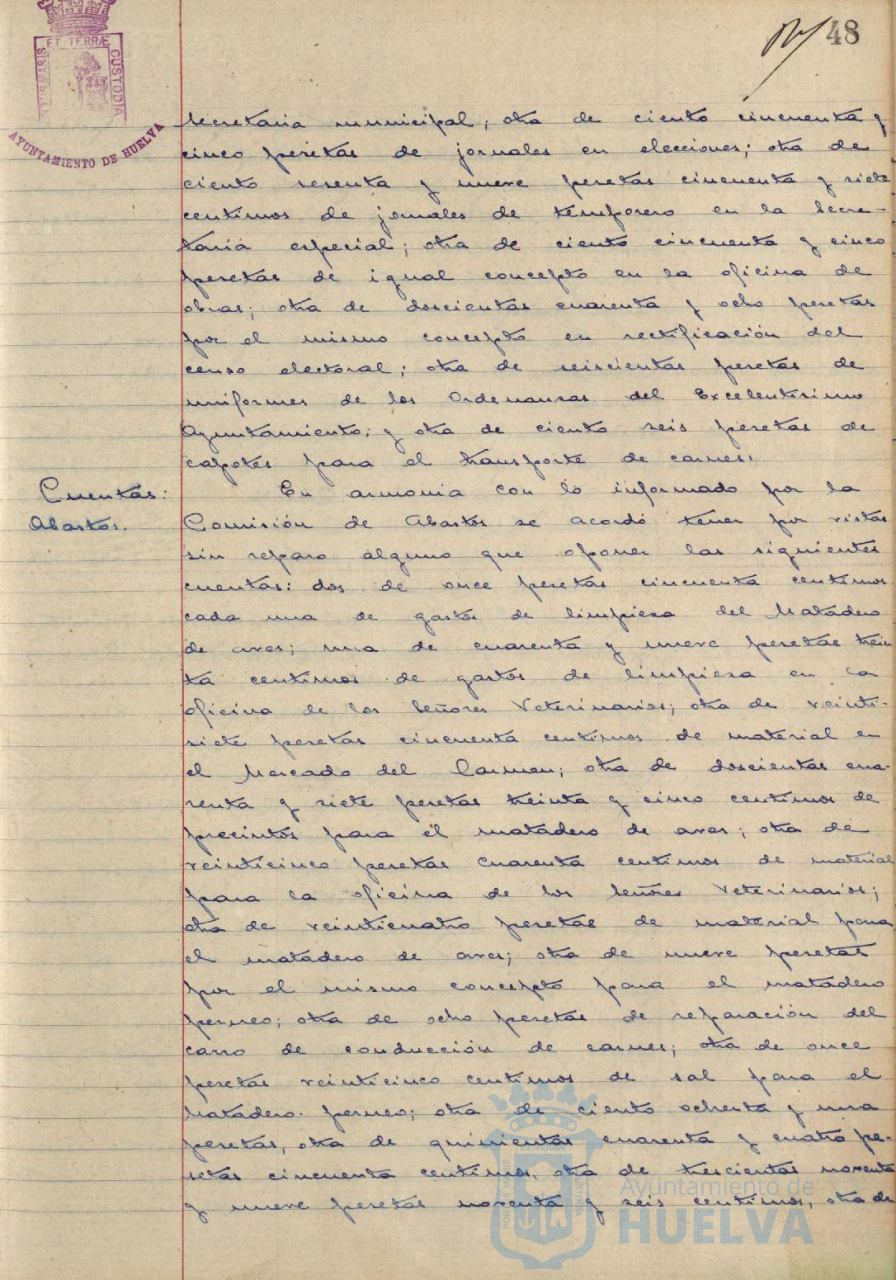 48
ET TERRÆ
CUSTODIA
AYUNTAMIENTO DE HUELVA
Secretaria municipal; otra de ciento cincuenta y
cinco pesetas de jornales en elecciones; otra de
ciento sesenta y nueve pesetas cincuenta y siete
centimos de jornales de temporero en la Secre-
taria especial; otra de ciento cincuenta y cinco
pesetas de igual concepto en la oficina de
obras; otra de doscientas cuarenta y ocho pesetas
por el mismo concepto en rectificación del
censo electoral; otra de seiscientas pesetas de
uniformes de los Ordenanzas del Excelentisimo
Ayuntamiento; y otra de ciento seis pesetas de
capotes para el transporte de carnes.
Cuentas:
Abastos.
En armonia con lo informado por la
Comisión de Abastos se acordó tener por vistas
sin reparo alguno que oponer las siguientes
cuentas: dos de once pesetas cincuenta centimos
cada una de gastos de limpiesa del Matadero
de aves; una de cuarenta y nueve pesetas trein
ta centimos de gastos de limpiesa en la
oficina de los Señores Veterinarios; otra de veinti-
siete pesetas cincuenta centimos de material en
el Mercado del Carmen; otra de doscientas cua-
renta y siete pesetas treinta y cinco centimos de
precintos para el matadero de aves; otra de
veinticinco pesetas cuarenta centimos de material
para la oficina de los Señores Veterinarios;
otra de veinticuatro pesetas de material para
el matadero de aves; otra de nueve pesetas
por el mismo concepto para el matadero
perneo; otra de ocho pesetas de reparación del
carro de conducción de carnes; otra de once
pesetas veinticinco centimos de sal para el
Matadero perneo; otra de ciento ochenta y una
pesetas, otra de quinientas cuarenta y cuatro pe-
setas cincuenta centimos, otra de trescientas noventa
y nueve pesetas noventa y seis centimos, otra de
Ayuntamiento de
HUELVA